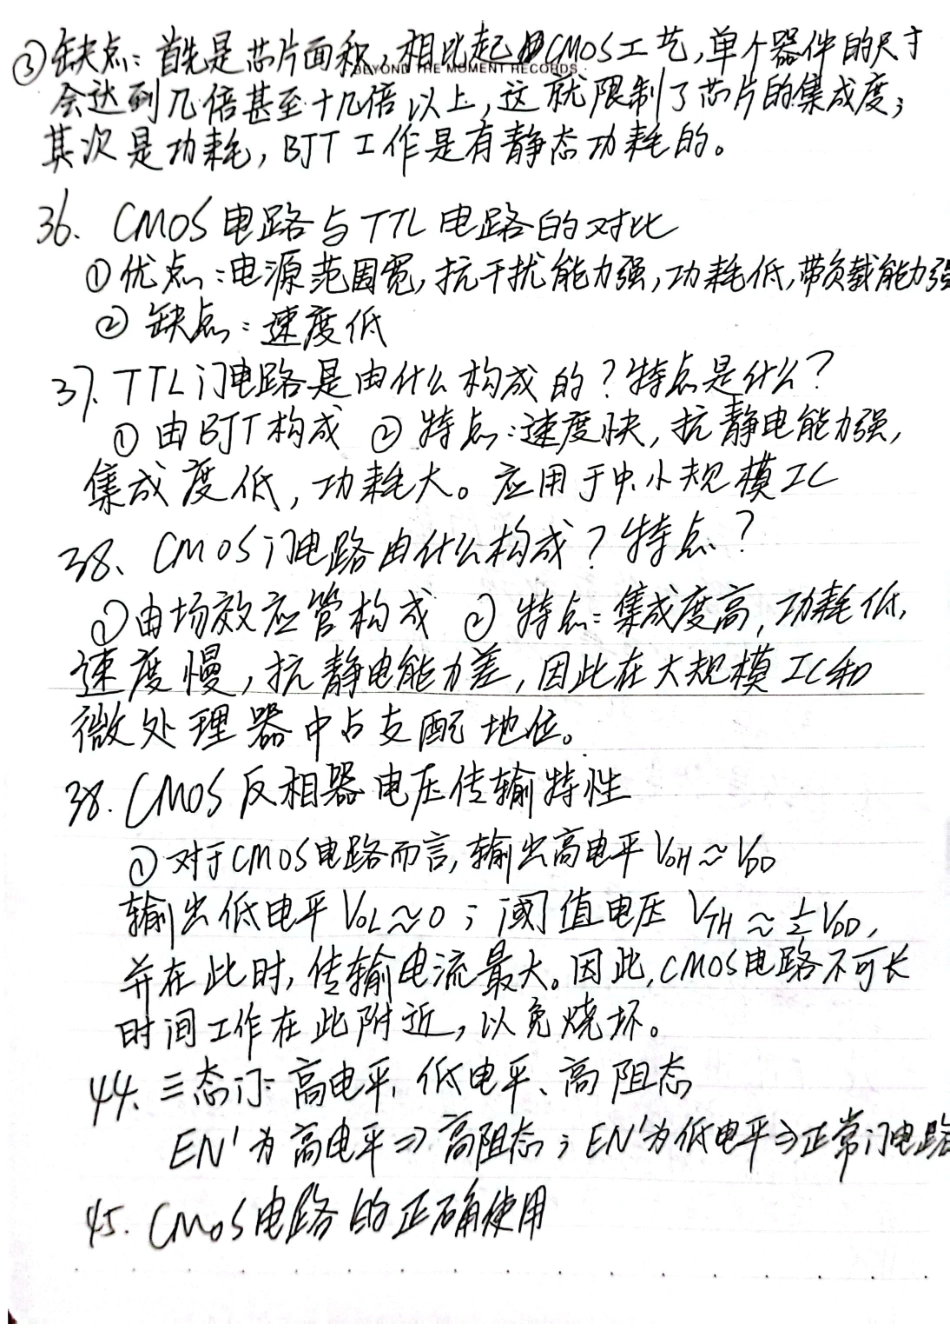 ③缺点:首先是芯片面积,相比起CMOS工艺,单个器件的尺寸
BEYOND THE MOMENT RECORDS
会达到几倍甚至十几倍以上,这就限制了芯片的集成度;
其次是功耗,BJT工作是有静态功耗的。
36、CMOS电路与TTL电路的对比
①优点:电源范围宽,抗干扰能力强,功耗低,带负载能力强
②缺点:速度低
37、TTL门电路是由什么构成的?特点是什么?
①由BJT构成 ②特点:速度快,抗静电能力强,
集成度低,功耗大。应用于中小规模IC
38、CMOS门电路由什么构成?特点?
①由场效应管构成 ②特点:集成度高,功耗低,
速度慢,抗静电能力差,因此在大规模IC和
微处理器中占支配地位。
38.CMOS反相器电压传输特性
①对于CMOS电路而言,输出高电平VOH≈VDD
输出低电平VOL≈0;阈值电压VTH≈½VDD,
并在此时,传输电流最大。因此,CMOS电路不可长
时间工作在此附近,以免烧坏。
44.三态门:高电平、低电平、高阻态
EN'为高电平⇒高阻态;EN'为低电平⇒正常门电路
45.CMOS电路的正确使用